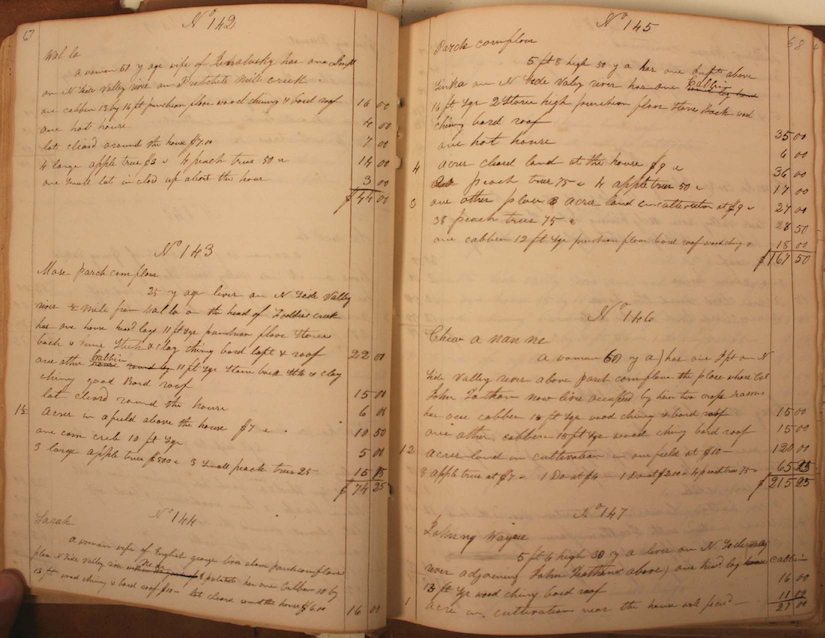 67
No 142
Wal la
a woman 60 y age wife of has one Impt
on N Side Valy river on mile creek
one cabbin 13 by 14 ft puncheon floor wood chimy & bord roof 16 00
one hot house 4 00
lot cleard around the house $7.00 7 00
4 large apple trees $3 4 peach trees 50 14 00
one small lot in closd up about the house 3 00
$44 00
No 143
Mose Parch corn flour
25 y age lives on N Side Valley
river ½ mile from Wal la on the head of creek
has one house hewd logs 11 ft sqr puncheon floor stone
back & Stick & clay chimy bord loft & roof 22 00
one other cabbin 11 ft sqr Stone back Stk & clay
chimy good Bord roof 15 00
lot cleard round the house 6 00
1½ acres in a field above the house $7 10 50
one corn crib 10 ft sqr 5 00
3 large apple trees 3 Small peach trees 25 15
$74 25
No 144
Sarah
a woman wife of English george lives above parch corn flour
place N Side vally river has one Cabbin 10 by
13 ft wood chimy & bord roof $10 lot cleard round the house $6.00 16 00
68
No 145
Parch cornflour
5 ft 8 high 50 y a has one Impt above
on N Side Valy river has one cabbin
16 ft sqr 2 Stories high puncheon floor Stone back wood
chimy bord roof 35 00
one hot house 6 00
4 acres cleard land at the house $9 36 00
peach trees 75 4 apple trees 50 17 00
3 one other place 3 acres land in cultivation at $9 27 00
38 peach trees 75 28 50
one cabbin 12 ft sqr puncheon floor bord roof wood chimy 18 00
$167 50
No 146
Chew a nan ne
a woman 60 y a has one Impt on N
Side Valley river above parch corn flour the place where
John now lives occupied by him two crops
has one cabben ft sqr wood chimy & bord roof 15 00
one other cabben 15 ft sqr wood chimy bord roof 15 00
12 acres land in cultivation in one field at $10 120 00
apple trees at $7 1 Do at $4 1 Do at 4 peach trees 75 65
$215
No 147
Johnny Wayne
5 ft 6 high 30 y a lives on N Side Valley
river adjoining John above one hewd log cabbin
13 ft sqr wood chimy bord roof 16 00
1 acre in cultivation near the house 11 00
27 00